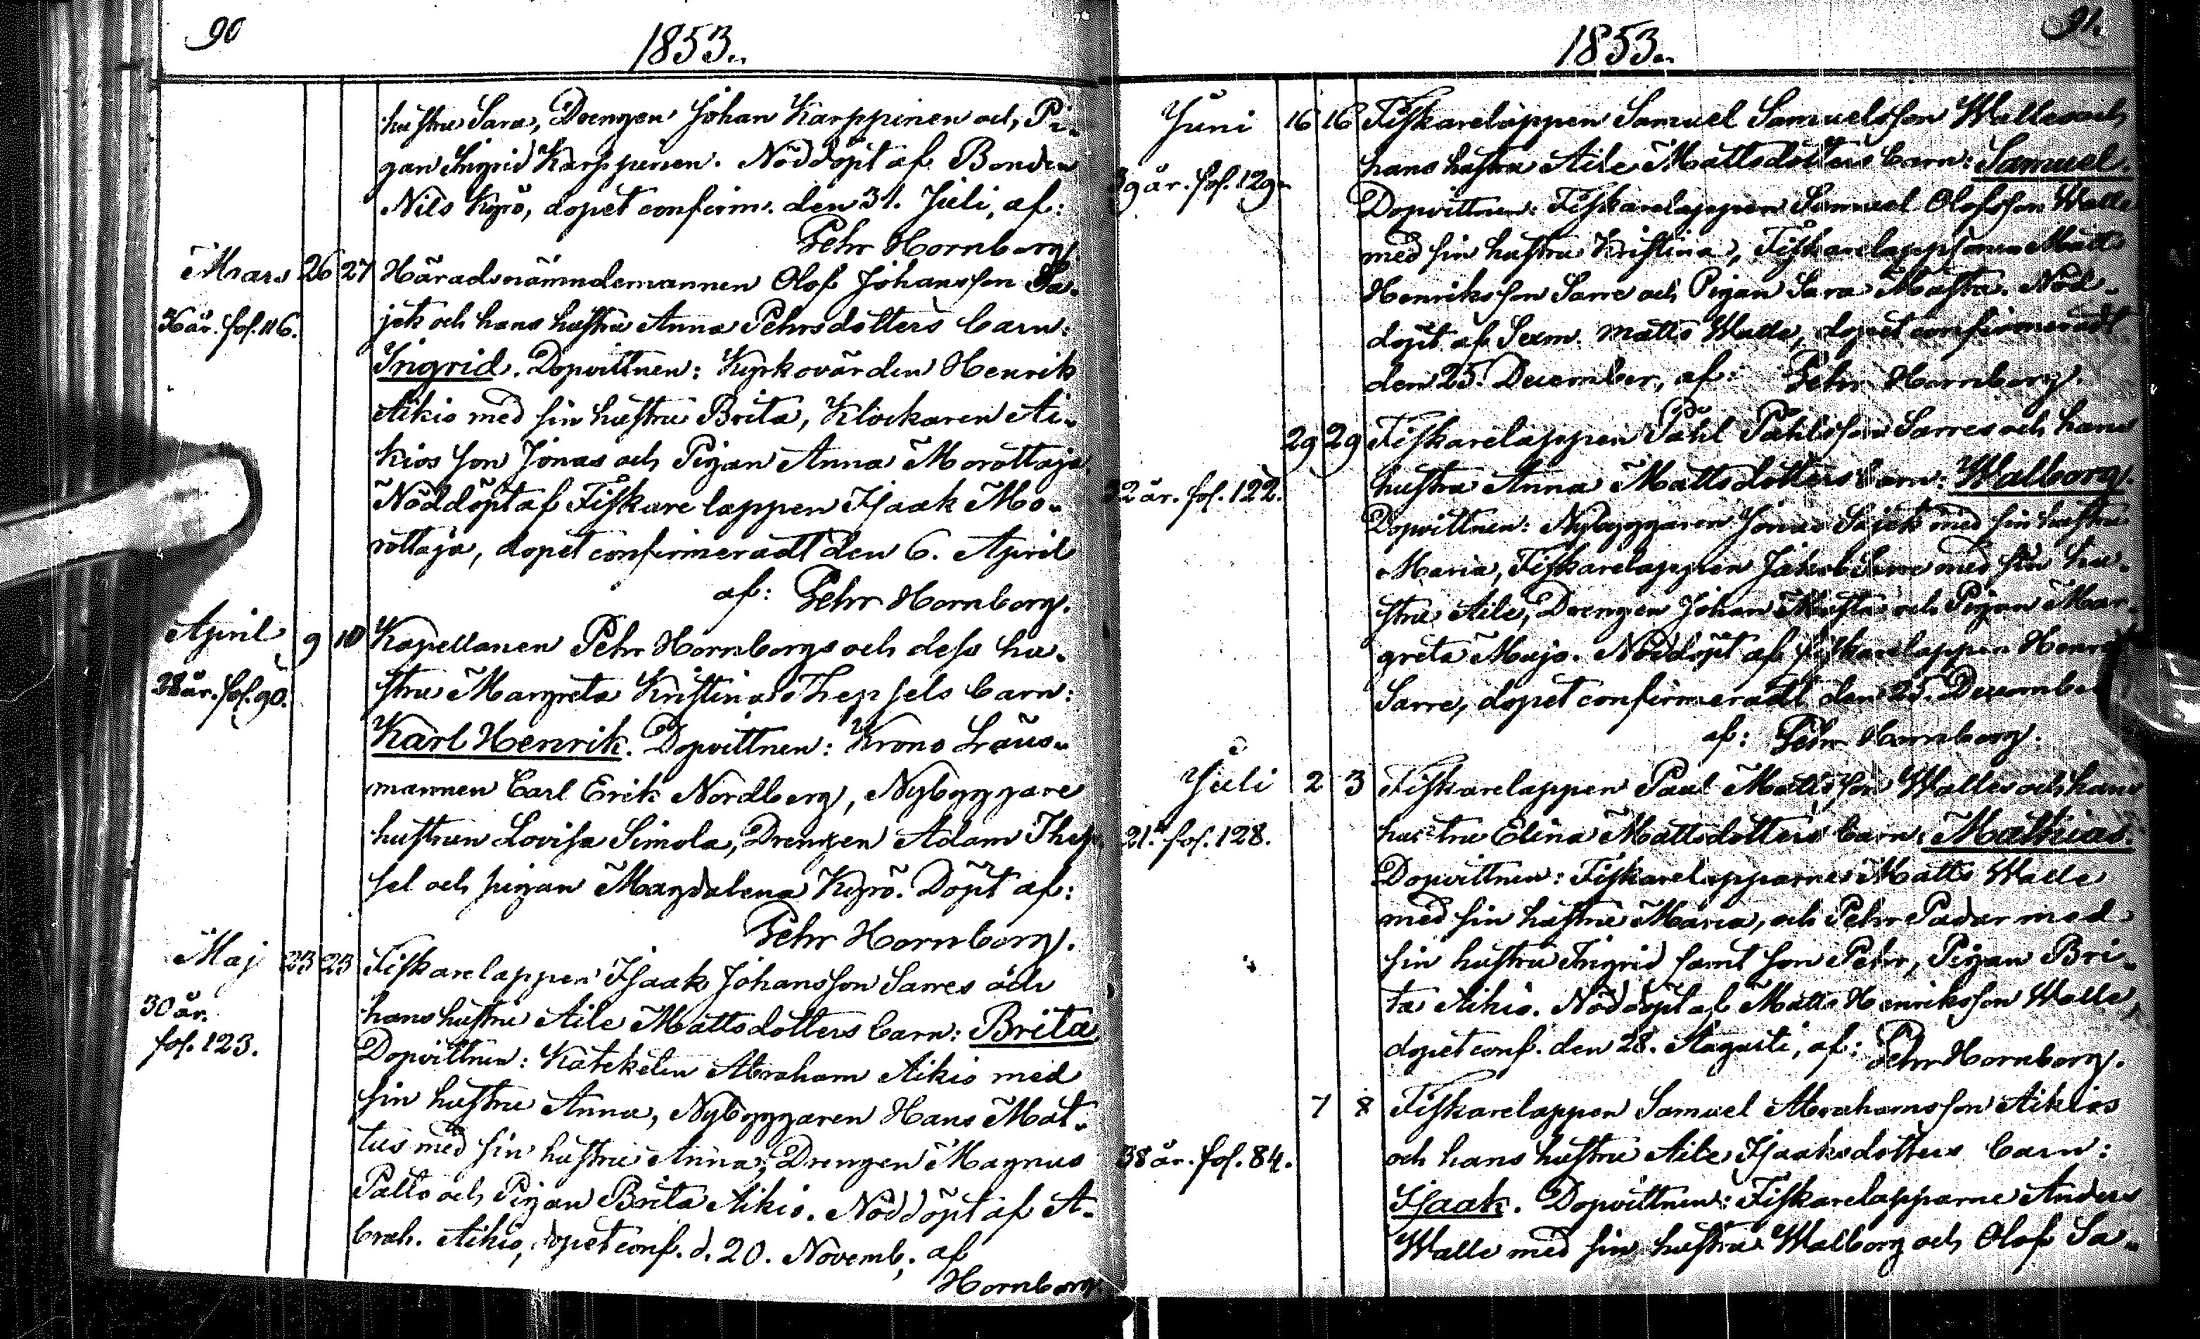 90
1853.
hustru Sara, Drengen Johan Karppinen och Pi-
gan Ingrid Karppinen. Nöddöpt af Bonden
Nils Kyrö, dopet confirm. den 31. Juli, af:
Pehr Hornborg.
Mars 26 27 Häradsnämndemannen Olof Johansson Sa-
36 år. fol. 116. jek och hans hustru Anna Pehrsdotters barn:
Ingrid. Dopvittnen: Kyrkovärden Henrik
Aikio med sin hustru Brita, Klockaren Ai-
kios son Jonas och Pigan Anna Morottaja
Nöddöpt af Fiskarelappen Isaak Mo-
rottaja, dopet confirmeradt den 6. April
af: Pehr Hornborg.
April 9 10 Kapellanen Pehr Hornborgs och dess hu-
28 år. fol. 90. stru Margreta Kristina Thepsels barn:
Karl Henrik. Dopvittnen: Krono Läns-
mannen Carl Erik Nordberg, Nybyggare
hustrun Lovisa Simola, Drengen Adam Thep
sel och pigan Magdalena Kyrö. Döpt af:
Pehr Hornborg.
Maj 23 23 Fiskarelappen Isaak Johansson Sarres och
30 år. hans hustru Aile Mattsdotters barn: Brita
fol. 123. Dopvittnen: Kateketen Abraham Aikio med
sin hustru Anna, Nybyggaren Hans Mat-
tus med sin hustru Anna, Drengen Magnus
Palto och Pigan Brita Aikio. Nöddöpt af A-
brah. Aikio, dopet conf. d. 20. Novemb, af
Hornborg.
91.
1853.
Juni 16 16 Fiskarelappen Samuel Samuelsson Walles och
hans hustru Aile Mattsdotters barn: Samuel.
39 år. fol. 129. Dopvittnen: Fiskarelappen Samuel Olofsson Walle
med sin hustru Kristina, Fiskarelappsonen Matts
Henriksson Sarre och Pigan Sara Musta. Nöd-
döpt af Sexm. Matts Walle, dopet confirmeradt
den 25. December, af: Pehr Hornborg.
29 29 Fiskarelappen Påhl Påhlsson Sarres och hans
32 år. fol. 122. hustru Anna Mattsdotters barn: Walborg.
Dopvittnen: Nybyggaren Jonas Sajek med sin hustru
Maria, Fiskarelappen Jakob Sarre med sin hu-
stru Aile, Drengen Johan Musta och Pigan Mar-
greta Mujo. Nöddöpt af fiskarelappen Henrik
Sarre, dopet confirmeradt den 25. December
af: Pehr Hornborg.
Juli 2 3 Fiskarelappen Paul Mattsson Walles och hans
21. fol. 128. hustru Elina Mattsdotters barn: Mathias.
Dopvittnen: Fiskarelapparne Matts Walle
med sin hustru Maria, och Pehr Padar med
sin hustru Ingrid samt son Pehr, Pigan Bri-
ta Aikio. Nöddöpt af Matts Henriksson Walle,
dopet conf. den 28. Augusti, af: Pehr Hornborg.
7 8 Fiskarelappen Samuel Abrahamsson Aikios
38 år. fol. 84. och hans hustru Aile Isaaksdotters barn:
Isaak. Dopvittnen: Fiskarelapparne Anders
Walle med sin hustru Walborg och Olof Sa-